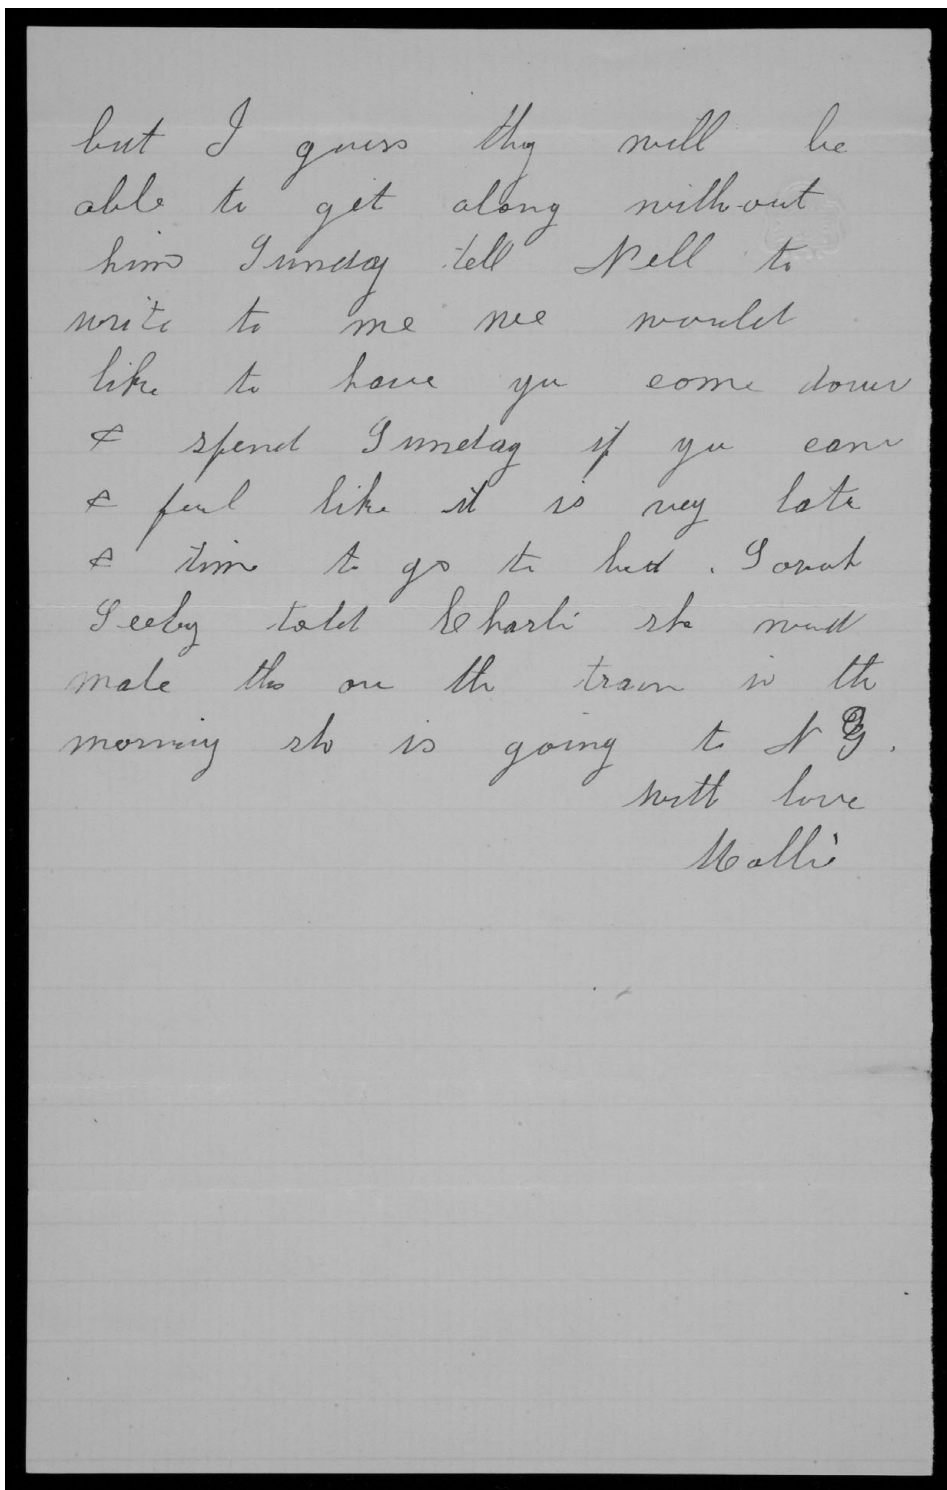 but I guess they will be
able to get along with-out
him Sunday tell Nell to
write to me we would
like to have you come down
& spend Sunday if you can
& feel like it is very late
& time to go to bed. Sarah
Seeley told Charli she
male this on the train in the
morning she is going to N Y.
with love
Mollie